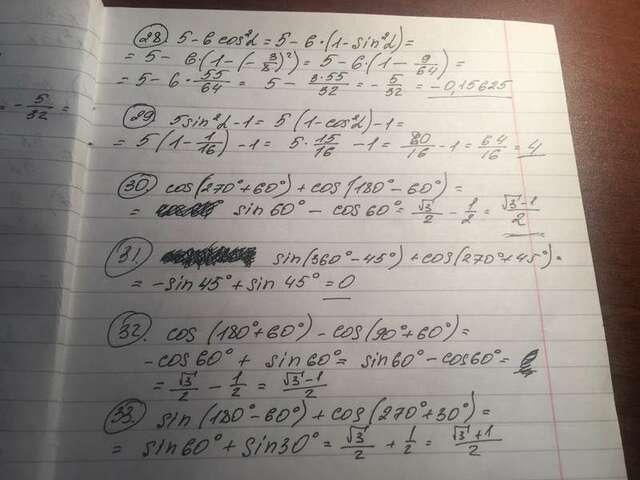 28. 5-6cos²α = 5-6·(1-sin²α) =
= 5- 6(1-(-3/8)²) = 5-6·(1-9/64) =
= 5-6·55/64 = 5 - 3·55/32 = -5/32 = -0,15625
= -5/32 =
29. 5sin²α-1 = 5(1-cos²α)-1 =
= 5(1-1/16)-1 = 5·15/16 -1 = 80/16 -1 = 64/16 = 4
30. cos(270°+60°) + cos(180°-60°) =
= sin60° - cos60° = √3/2 - 1/2 = √3-1/2
31. sin(360°-45°) + cos(270°+45°) =
= -sin45° + sin45° = 0
32. cos(180°+60°) - cos(90°+60°) =
-cos60° + sin60° = sin60° - cos60° =
= √3/2 - 1/2 = √3-1/2
33. sin(180°-60°) + cos(270°+30°) =
= sin60° + sin30° = √3/2 + 1/2 = √3+1/2